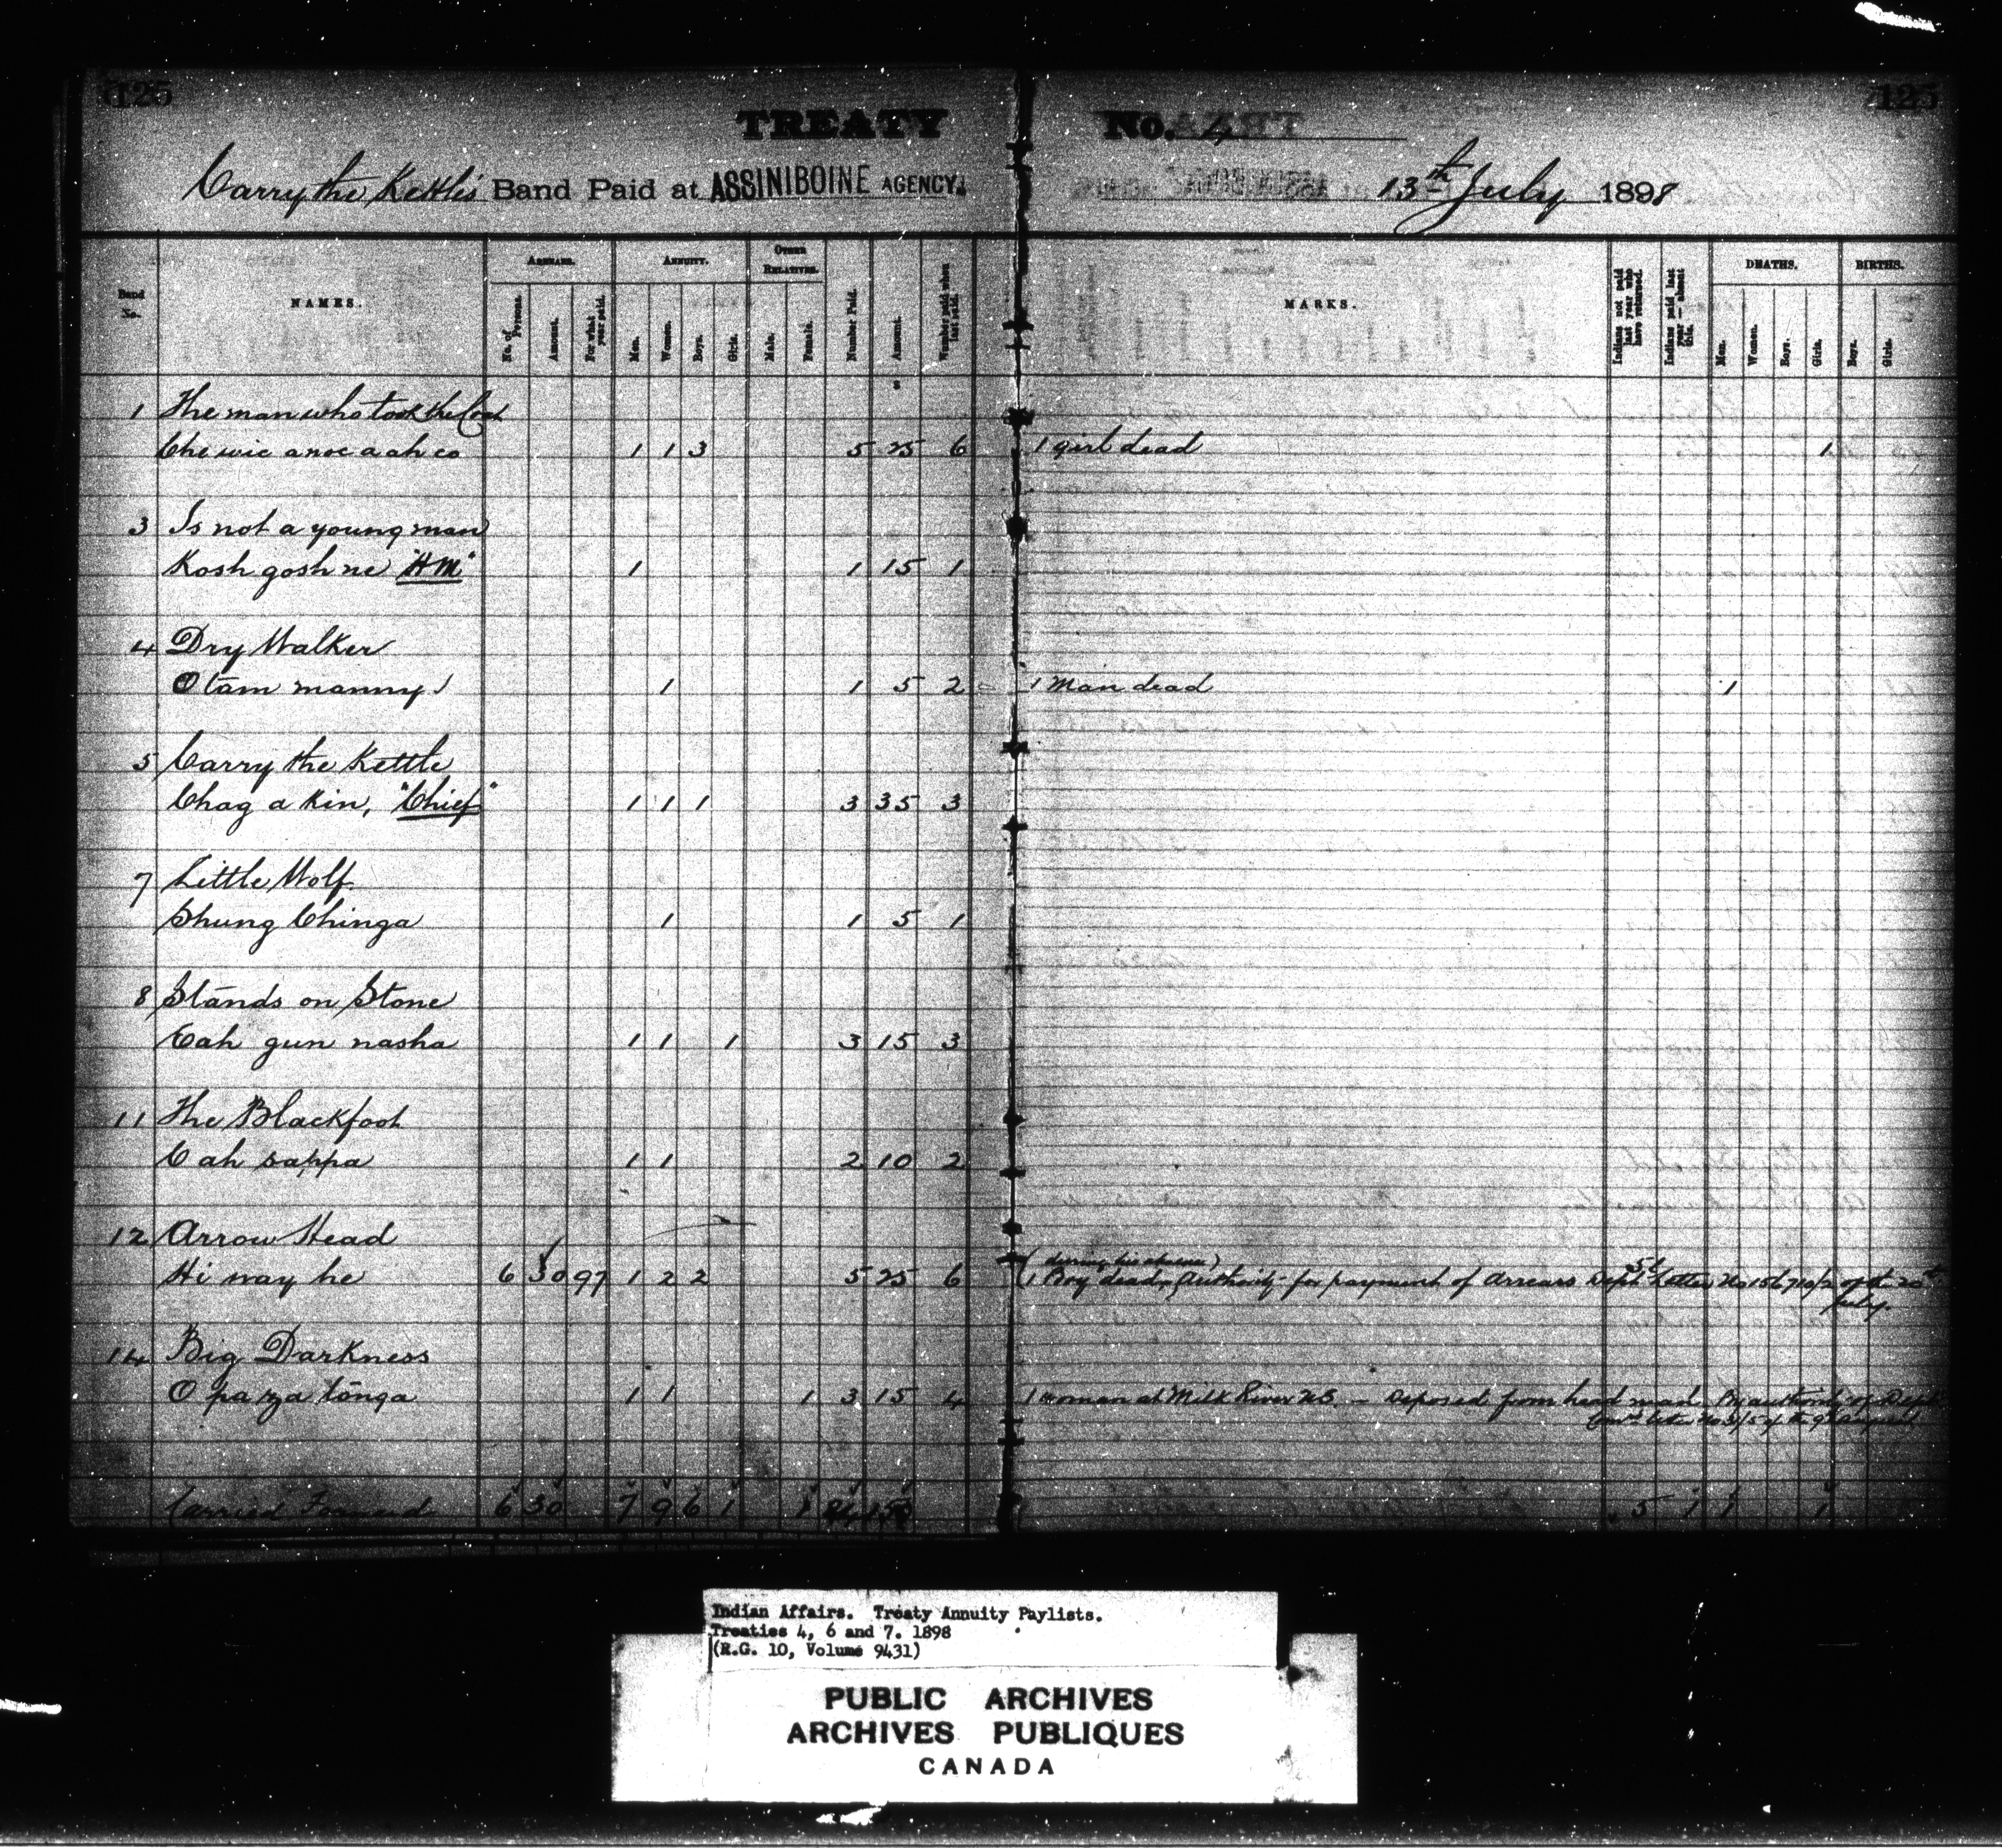 125
125
TREATY No. 4
Carry the Kettle's Band Paid at ASSINIBOINE AGENCY. 13th July 1898
Band No.
NAMES.
ARREARS.
No. of Persons.
Amount.
For what year paid.
ANNUITY.
Men.
Women.
Boys.
Girls.
OTHER RELATIVES.
Male.
Female.
Number Paid.
Amount.
Number paid when last paid.
MARKS.
Indians not paid last year who have returned.
Indians paid last year — absent this.
DEATHS.
Men.
Women.
Boys.
Girls.
BIRTHS.
Boys.
Girls.
1 The man who took the Coat
Che wic a noc a ah co 1 1 3 5 25 6 1 girl dead 1
3 Is not a young man
Kosh gosh ne "HM" 1 1 15 1
4 Dry Walker
O tam manny 1 1 5 2 1 Man dead 1
5 Carry the Kettle
Chag a kin, "Chief" 1 1 1 3 35 3
7 Little Wolf
Shung Chinga 1 1 5 1
8 Stands on Stone
Eah gun nasha 1 1 1 3 15 3
11 The Blackfoot
Cah sappa 1 1 2 10 2
12 Arrow Head
(during his absence)
Hi way he 6 30 97 1 2 2 5 25 6 1 Boy dead, Authority for payment of Arrears Dept Letter No of the 20th
July.
14 Big Darkness
O pa za tonga 1 1 1 3 15 4 1 woman at Milk River U.S. — Deposed from head man By authority of Dept
Carried Forward 6 30 7 9 6 1 1 24 150 5 1 1 1
Indian Affairs. Treaty Annuity Paylists.
Treaties 4, 6 and 7. 1898
(R.G. 10, Volume 9431)
PUBLIC ARCHIVES
ARCHIVES PUBLIQUES
CANADA